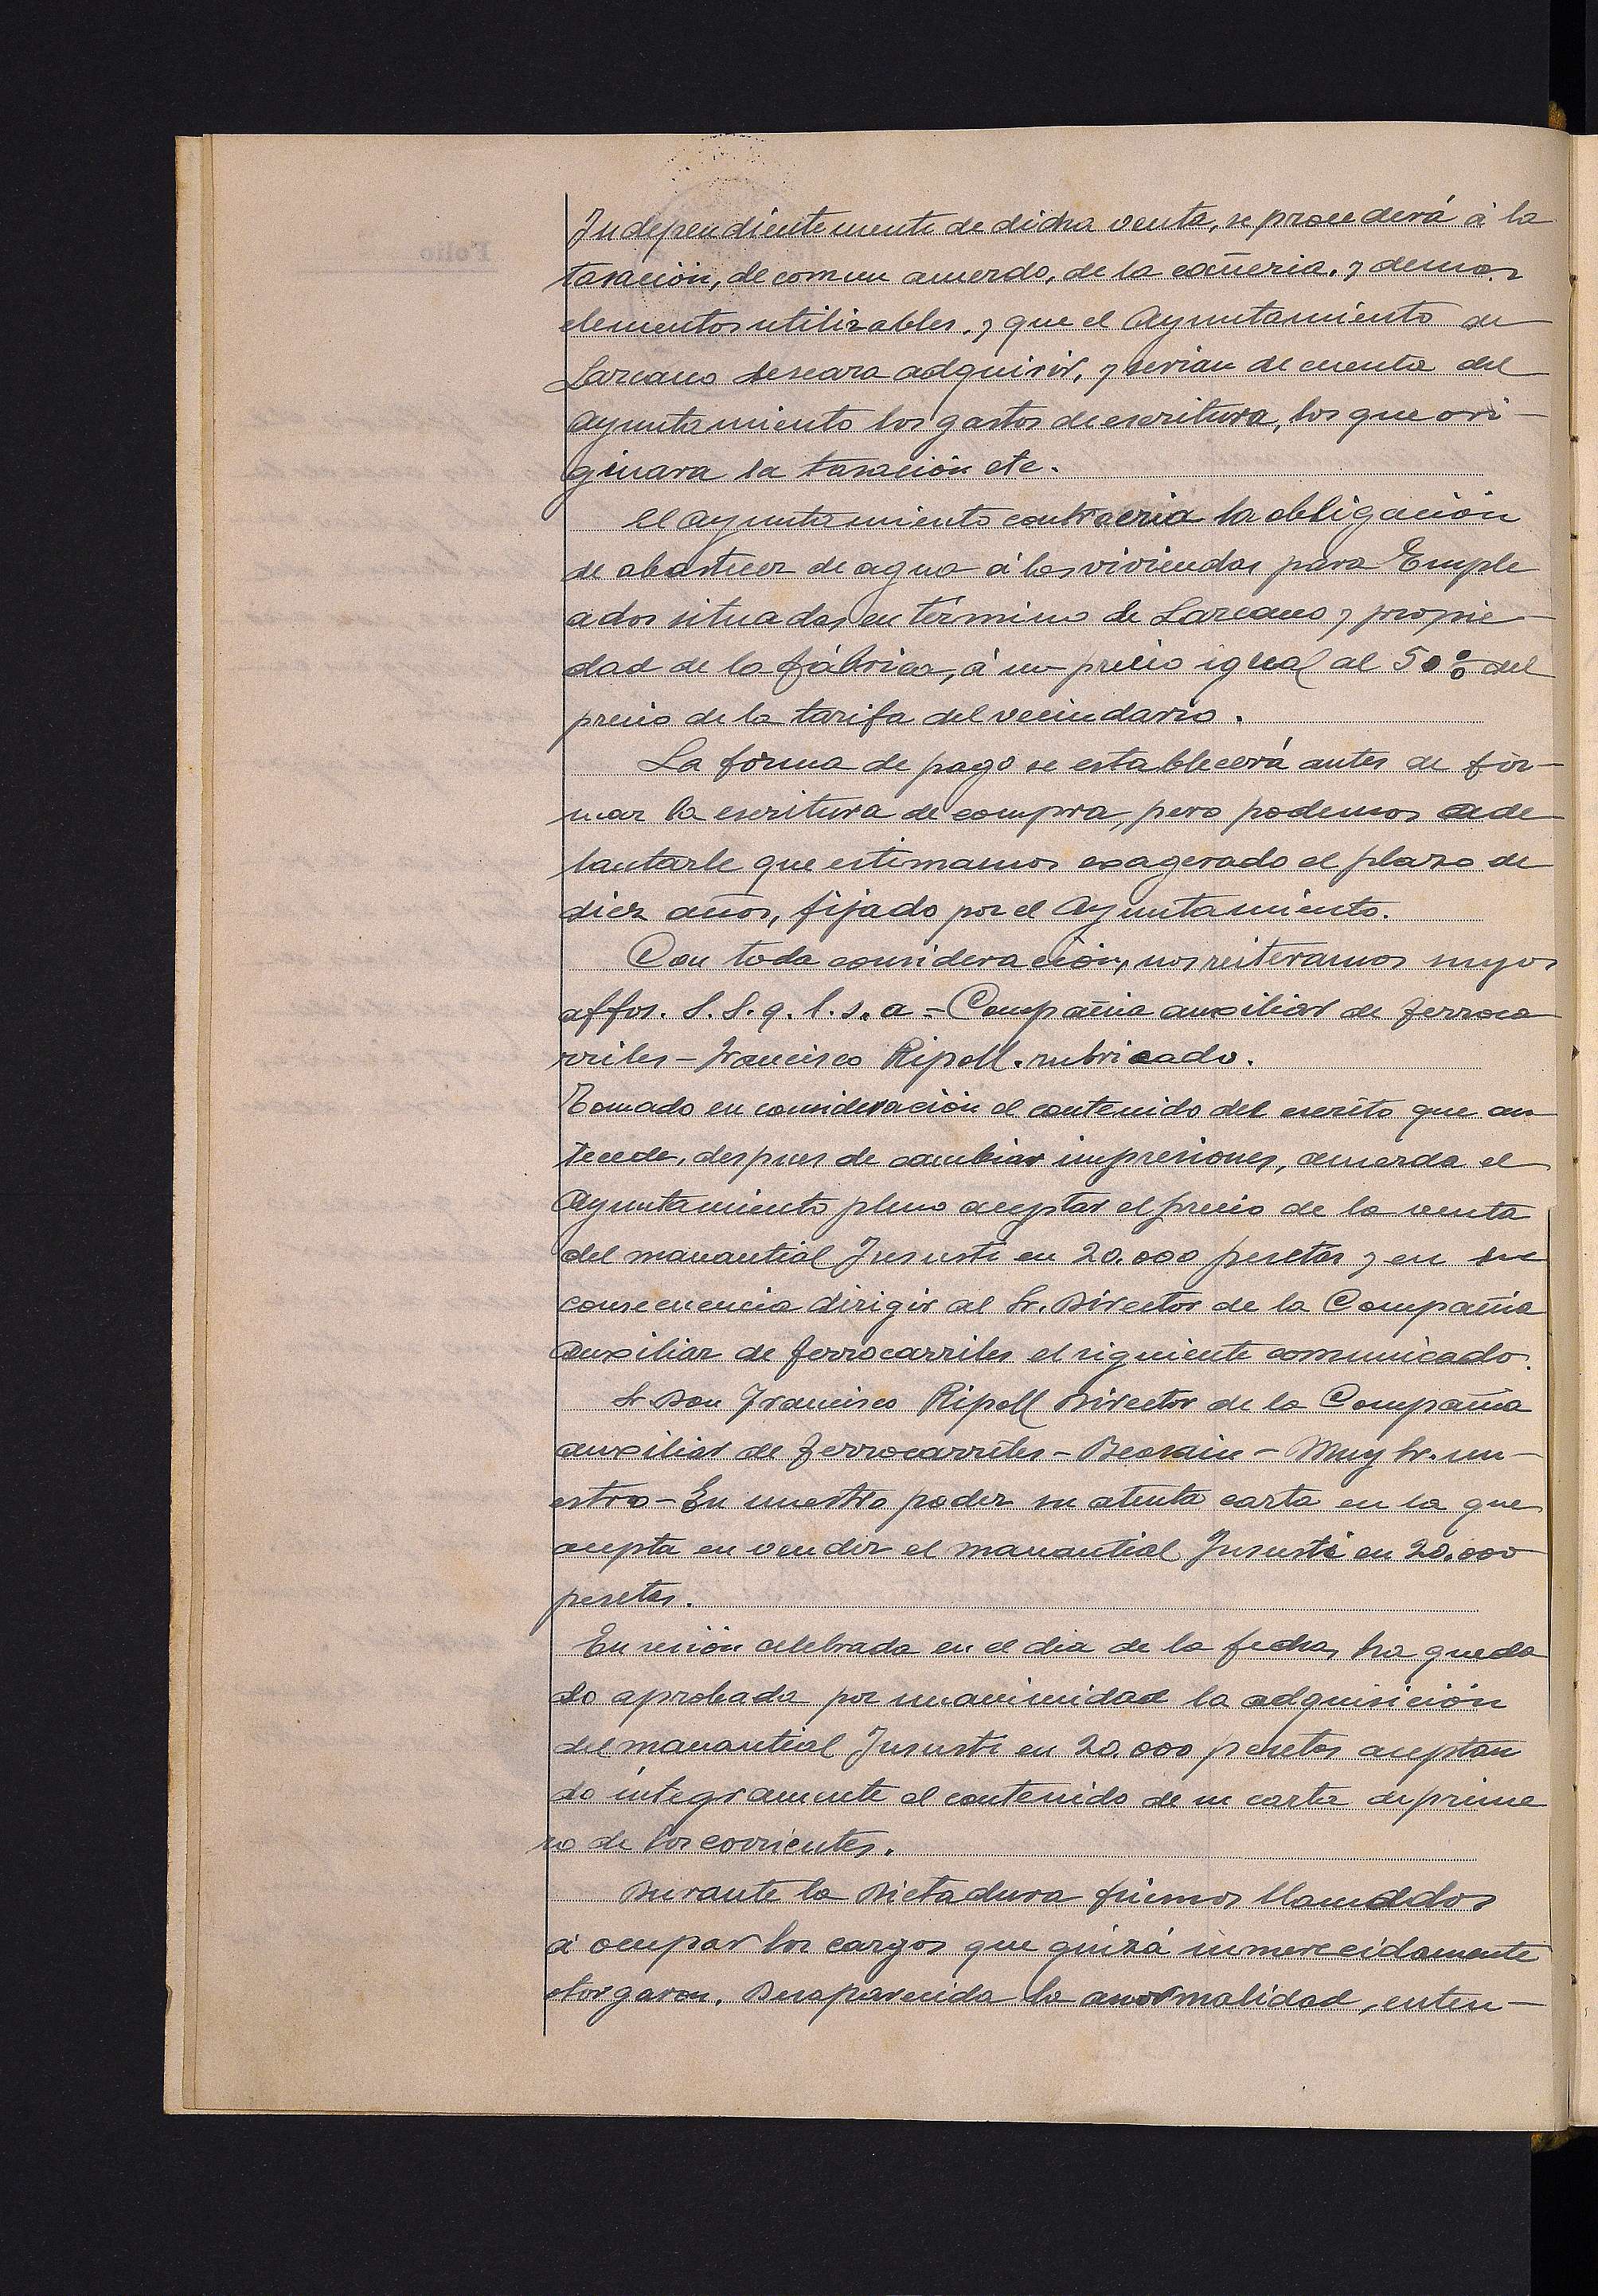 Independientemente de dicha venta, se procederá á la
tasación, de comun acuerdo, de la cañeria, y demas
elementos utilizables, y que el Ayuntamiento de
Lazcano deseara adquirir, y serian de cuenta del
Ayuntamiento los gastos de escritura, los que ori-
ginara la tasación etc.
El Ayuntamiento contraeria la obligación
de abastecer de agua á las viviendas para Emple
ados situadas en término de Lazcano y propie-
dad de la fábrica, á un precio igual al 50% del
precio de la tarifa del vecindario.
La forma de pago se establecerá antes de fir-
mar la escritura de compra, pero podemos ade
lantarle que estimamos exagerado el plazo de
diez años, fijado por el Ayuntamiento.
Con toda consideración, nos reiteramos suyos
affos. S. S. q. l. s. a - Compañia auxiliar de ferroca
rriles - Francisco Ripoll. rubricado.
Tomado en consideración el contenido del escrito que an
tecede, despues de cambiar impresiones, acuerda el
Ayuntamiento pleno aceptar el precio de la venta
del manantial Jususti en 20.000 pesetas y en su
consecuencia dirigir al Sr. Director de la Compañia
Auxiliar de ferrocarriles el siguiente comunicado.
Sr Don Francisco Ripoll Director de la Compañia
auxiliar de ferrocarriles - Beasain - Muy Sr. nu-
estro - En nuestro poder su atenta carta en la que
acepta en vender el manantial Jususti en 20.000
pesetas.
En sesión celebrada en el dia de la fecha, ha queda
do aprobada por unanimidad la adquisición
del manantial Jususti en 20.000 pesetas aceptan
do integramente el contenido de su carta de prime
ro de los corrientes.
Durante la Dictadura fuimos llamados
á ocupar los cargos que quizá inmerecidamente
otorgaron. Desaparecida la anormalidad, enten-
Folio